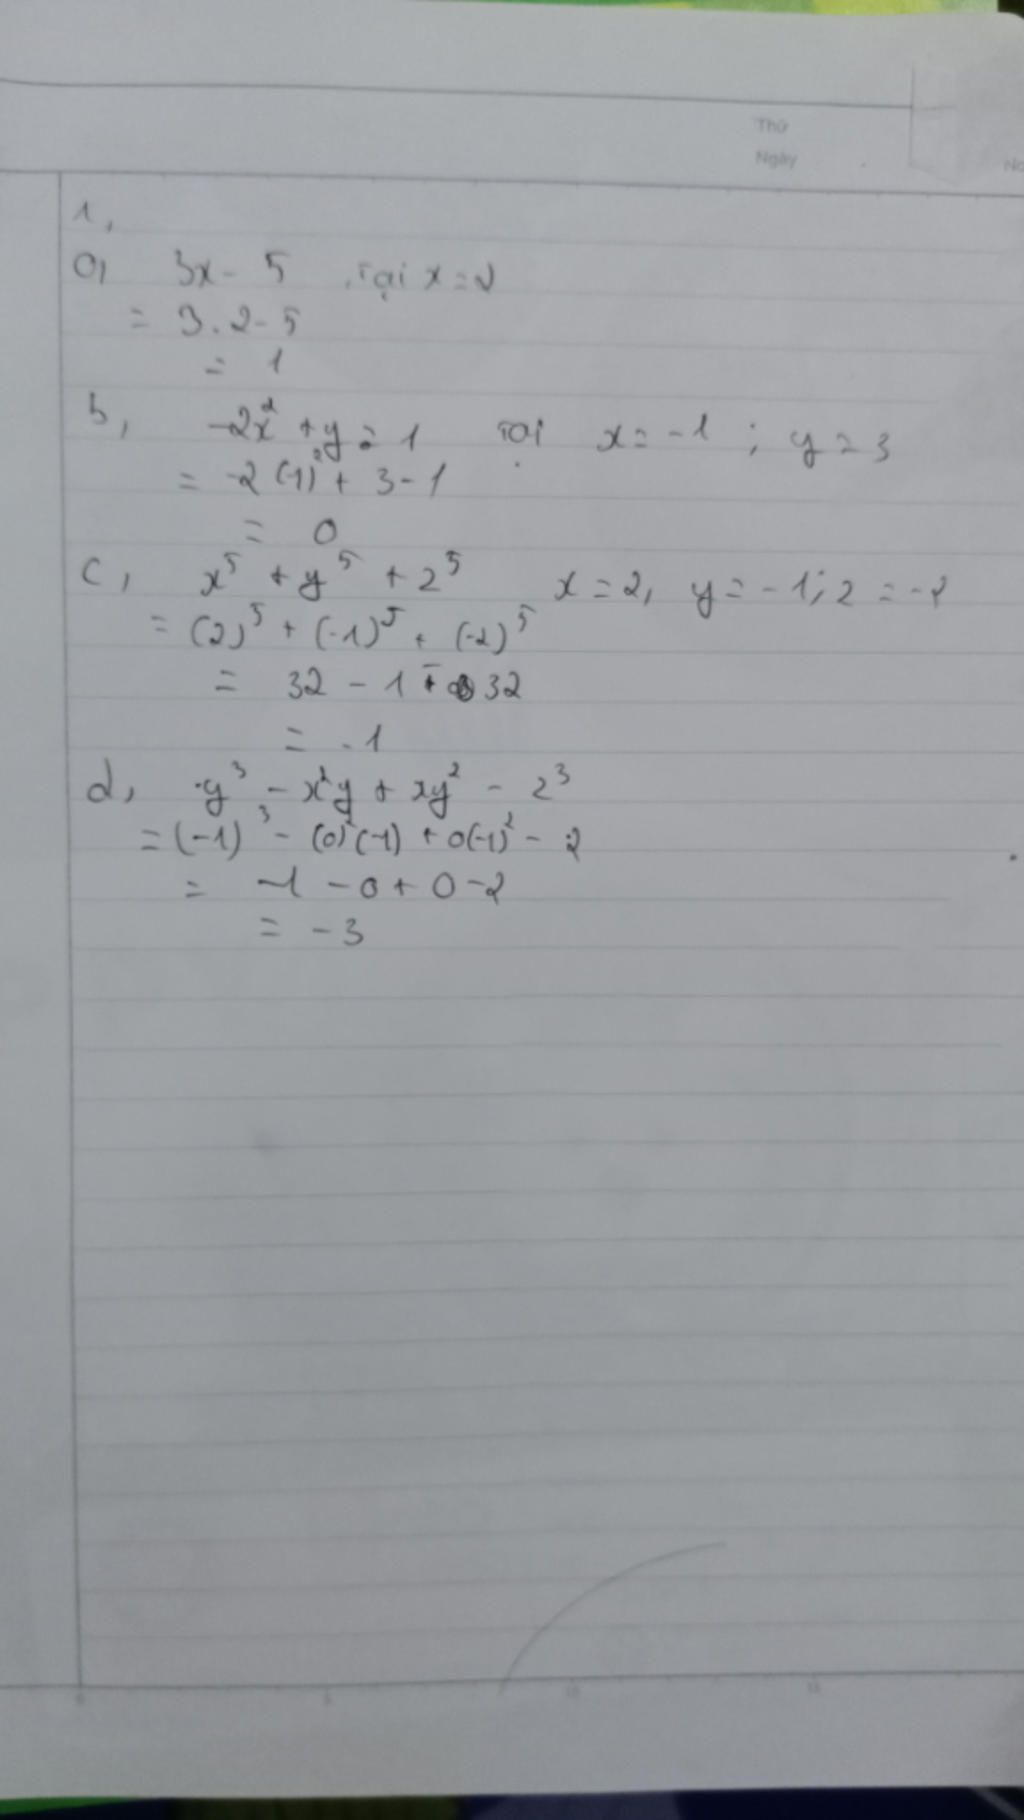 Thứ
Ngày
No
1,
a, 3x - 5 tại x = 2
= 3.2 - 5
= 1
b, -2x² + y = 1 tại x = -1 ; y = 3
= -2 (-1)² + 3 - 1
= 0
c, x⁵ + y⁵ + 2⁵ x = 2, y = -1; 2 = -2
= (2)⁵ + (-1)⁵ + (-2)⁵
= 32 - 1 - 32
= -1
d, y³ - x²y + xy² - 2³
= (-1)³ - (0)²(-1) + 0(-1)² - 2
= -1 - 0 + 0 - 2
= -3
0 5 10 15